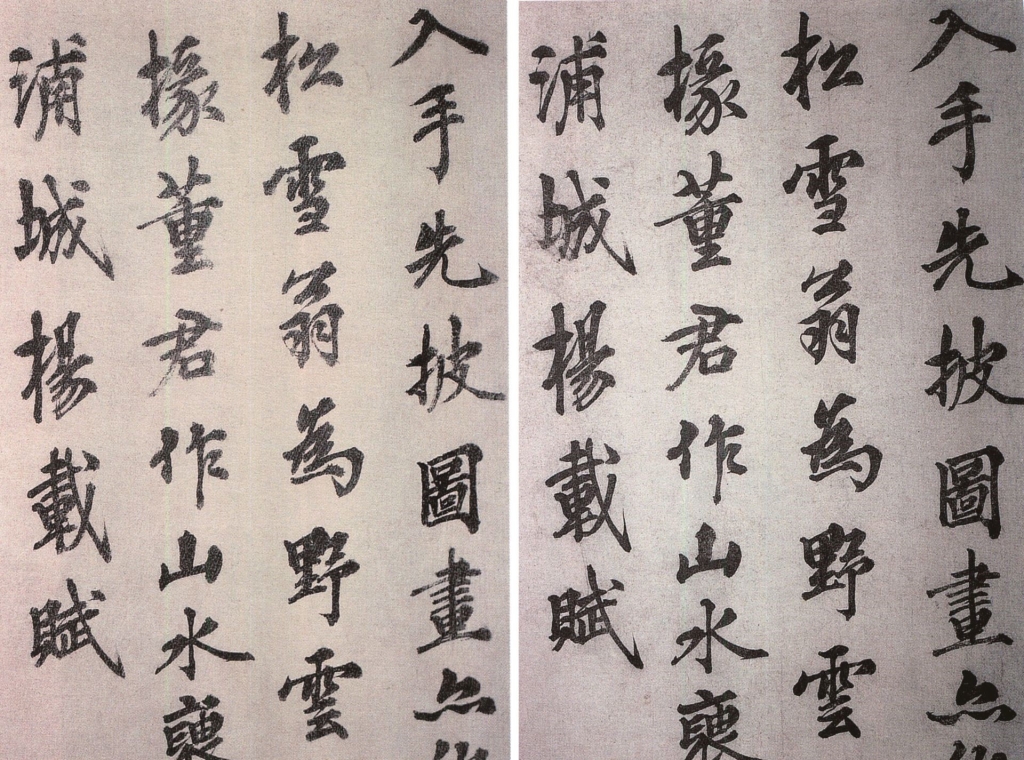 入手先披圖畫
松雪翁為野雲
掾董君作山水
浦城楊載賦
入手先披圖畫
松雪翁為野雲
掾董君作山水
浦城楊載賦